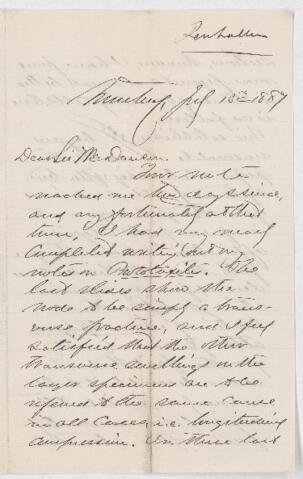 Penhallow
Montreal, July 13th 1887
Dear Sir Wm Dawson.
Your note
reached me two days since,
and very fortunately at that
time, I had very nearly
completed writing out my
notes on
last slides show the
node to be simply a trans-
verse fracture, and I feel
satisfied that the other
transverse swellings in the
larger specimens are to be
referred to the same cause
in all cases i.e. longitudinal
compression. In these last